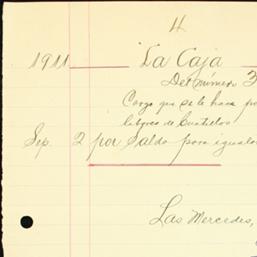 4
1911 La Caja
Del número 3
Cargo que se le hace po
libreo de Cuatielos
Sep. 2 por Saldo para igualo
Las Mercedes,